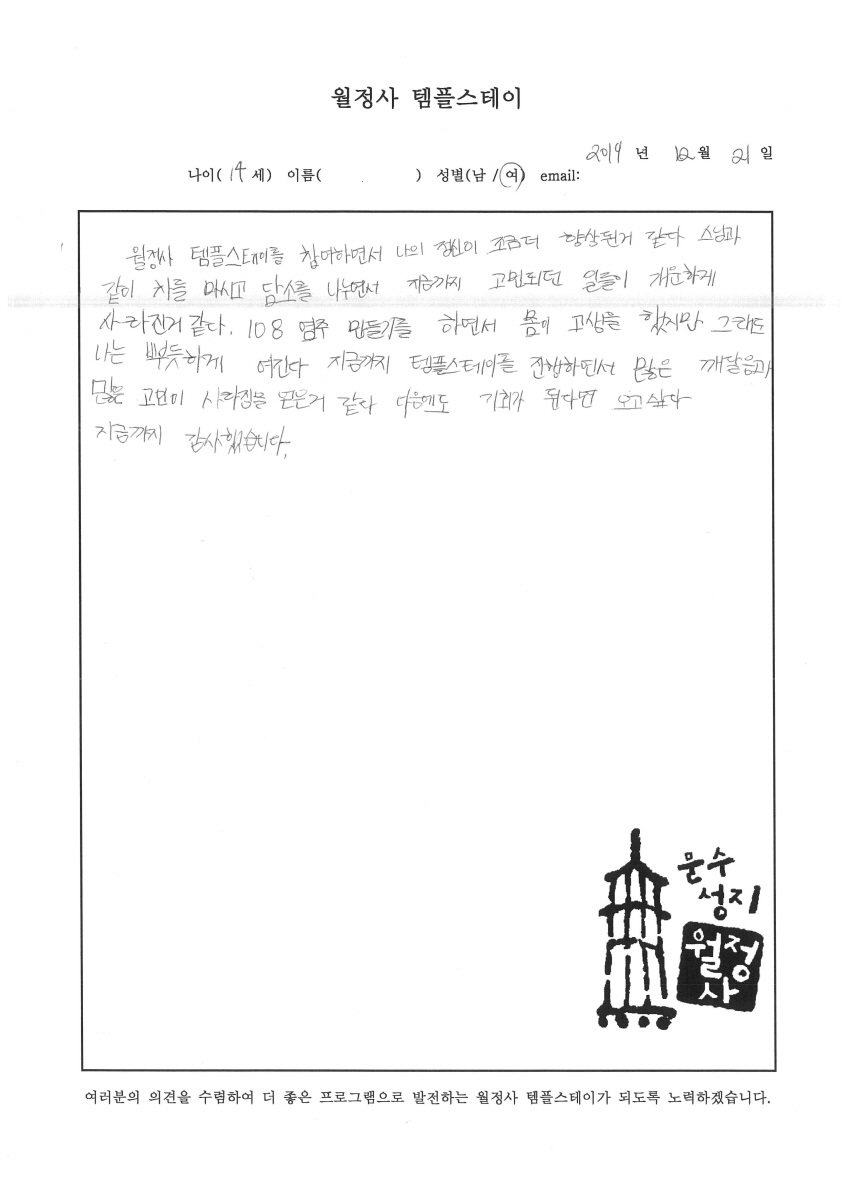 월정사 템플스테이
2019 년 12 월 21 일
나이( 14 세) 이름( ) 성별(남 / 여) email:
월정사 템플스테이를 참여하면서 나의 정신이 조금더 향상된거 같다 스님과
같이 차를 마시고 담소를 나누면서 지금까지 고민되던 일들이 개운하게
사라진거 같다. 108 염주 만들기를 하면서 몸이 고생을 했지만 그래도
나는 뿌듯하게 여긴다 지금까지 템플스테이를 진행하면서 많은 깨달음과
많은 고민이 사라짐을 얻은거 같다 다음에도 기회가 된다면 오고싶다
지금까지 감사했습니다.
문수
성지
월정
사
여러분의 의견을 수렴하여 더 좋은 프로그램으로 발전하는 월정사 템플스테이가 되도록 노력하겠습니다.